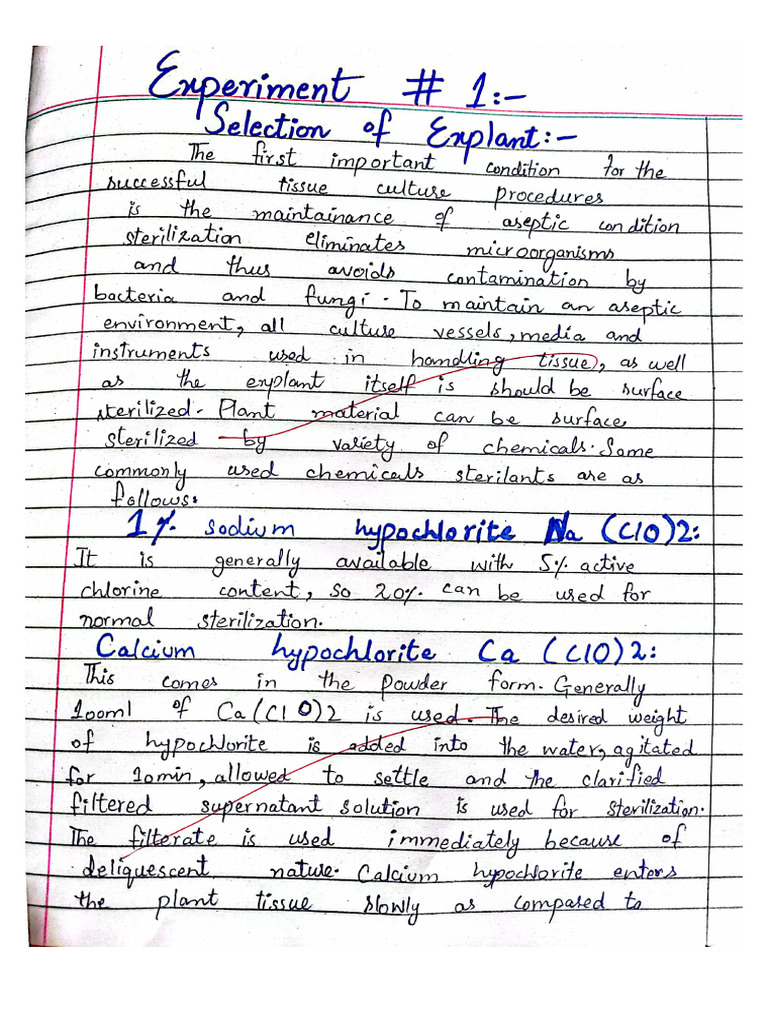 Experiment # 1:-
Selection of Explant:-
The first important condition for the
successful tissue culture procedures
is the maintainance of aseptic condition
sterilization eliminates microorganisms
and thus avoids contamination by
bacteria and fungi. To maintain an aseptic
environment, all culture vessels, media and
instruments used in handling tissue, as well
as the explant itself is should be surface
sterilized. Plant material can be surface
sterilized by variety of chemicals. Some
commonly used chemicals sterilants are as
follows.
1% sodium hypochlorite Na (ClO)2:
It is generally available with 5% active
chlorine content, so 20% can be used for
normal sterilization.
Calcium hypochlorite Ca (ClO)2:
This comes in the powder form. Generally
100ml of Ca(ClO)2 is used. The desired weight
of hypochlorite is added into the water, agitated
for 10min, allowed to settle and the clarified
filtered supernatant solution is used for sterilization.
The filterate is used immediately because of
deliquescent nature. Calcium hypochlorite enters
the plant tissue slowly as compared to